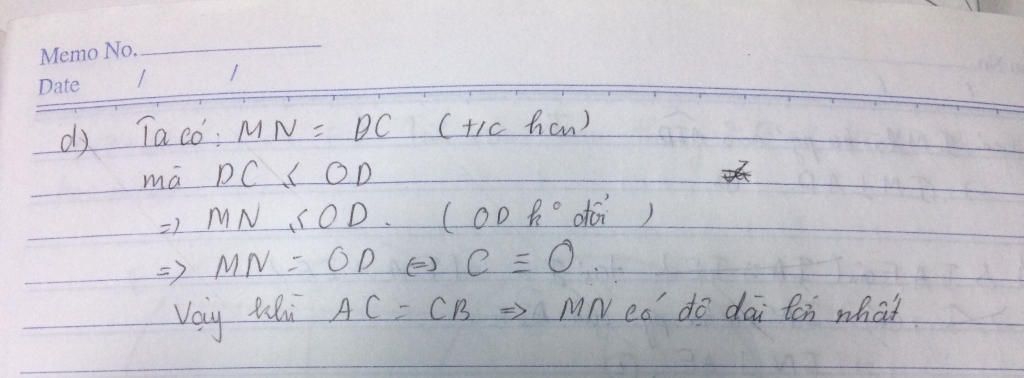 Memo No.
Date / /
d) Ta có: MN = DC (t/c hcn)
mà DC ≤ OD
=> MN ≤ OD. (OD k° đổi)
=> MN = OD <=> C ≡ O.
Vậy khi AC = CB => MN có độ dài lớn nhất.